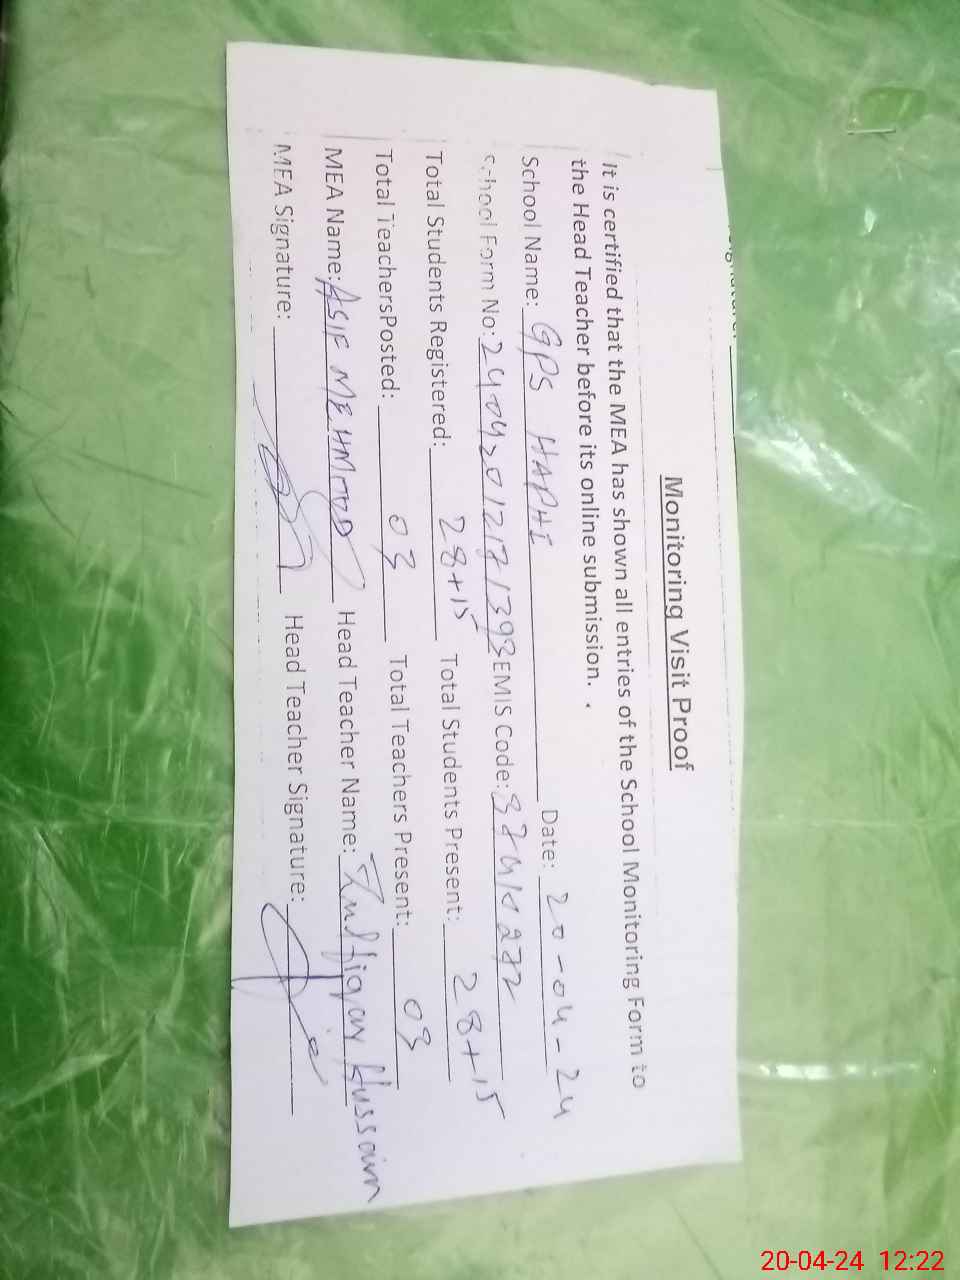 Monitoring Visit Proof
It is certified that the MEA has shown all entries of the School Monitoring Form to
the Head Teacher before its online submission.
School Name: GPS HAPHI Date: 20-04-24
School Form No: EMIS Code:
Total Students Registered: 28+15 Total Students Present: 28+15
Total TeachersPosted: 03 Total Teachers Present: 03
MEA Name: ASIF MEHMOOD Head Teacher Name: Zulfiqar Hussain
MEA Signature: Head Teacher Signature:
20-04-24 12:22